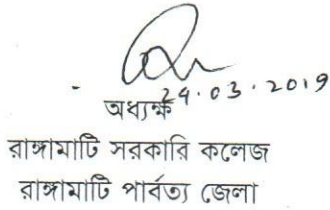 24.03.2019
অধ্যক্ষ
রাঙ্গামাটি সরকারি কলেজ
রাঙ্গামাটি পার্বত্য জেলা